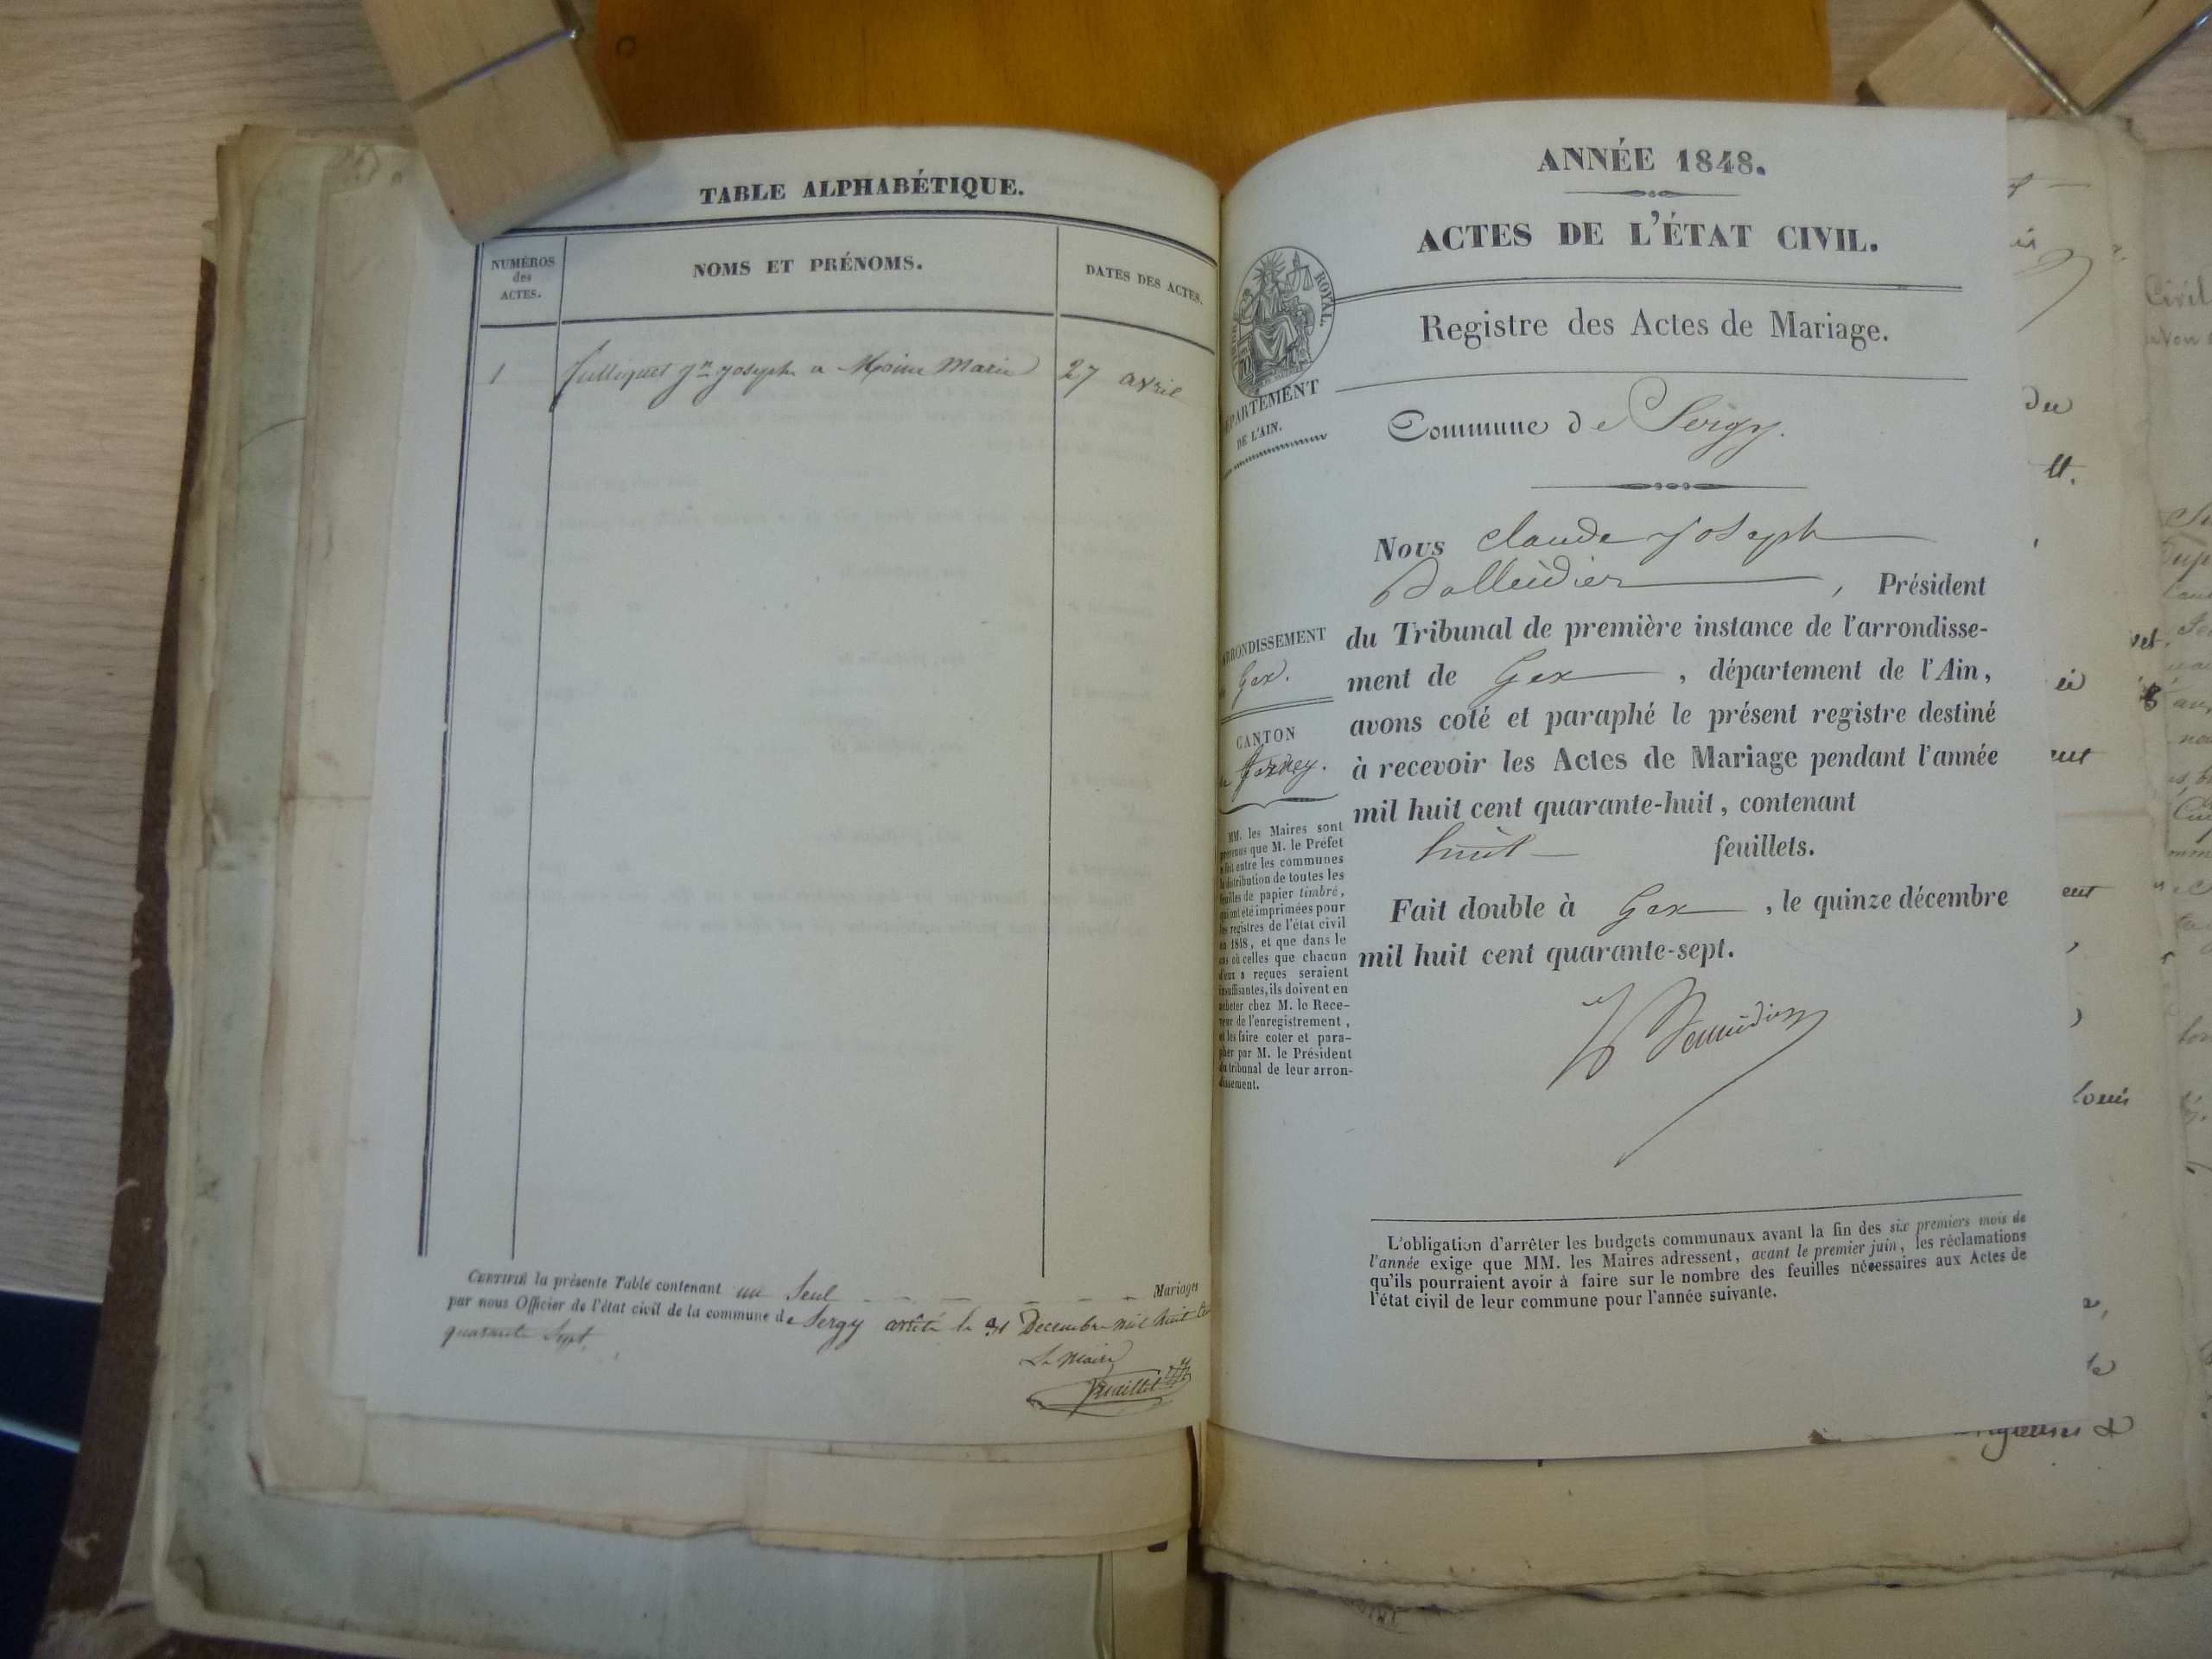 TABLE ALPHABÉTIQUE.
NUMÉROS
des
ACTES.
NOMS ET PRÉNOMS.
DATES DES ACTES.
1 Julliquet Jn Joseph a Moine Marie 27 avril
CERTIFIÉ la présente Table contenant un Seul Mariages
par nous Officier de l'état civil de la commune de Sergy arrêté le 31 Decembre mil huit Cent
quarante Sept.
Le Maire
ANNÉE 1848.
ACTES DE L'ÉTAT CIVIL.
ROYAL.
Registre des Actes de Mariage.
DÉPARTEMENT
DE L'AIN.
Commune de Sergy.
Nous Claude Joseph
, Président
du Tribunal de première instance de l'arrondisse-
ment de Gex , département de l'Ain,
avons coté et paraphé le présent registre destiné
à recevoir les Actes de Mariage pendant l'année
mil huit cent quarante-huit, contenant
huit feuillets.
Fait double à Gex , le quinze décembre
mil huit cent quarante-sept.
ARRONDISSEMENT
de Gex.
CANTON
de Ferney.
MM. les Maires sont
prévenus que M. le Préfet
a fait entre les communes
la distribution de toutes les
feuilles de papier timbré,
qui ont été imprimées pour
les registres de l'état civil
en 1848, et que dans le
cas où celles que chacun
d'eux a reçues seraient
insuffisantes, ils doivent en
acheter chez M. le Rece-
veur de l'enregistrement,
et les faire coter et para-
pher par M. le Président
du tribunal de leur arron-
dissement.
L'obligation d'arrêter les budgets communaux avant la fin des six premiers mois de
l'année exige que MM. les Maires adressent, avant le premier juin, les réclamations
qu'ils pourraient avoir à faire sur le nombre des feuilles nécessaires aux Actes de
l'état civil de leur commune pour l'année suivante.